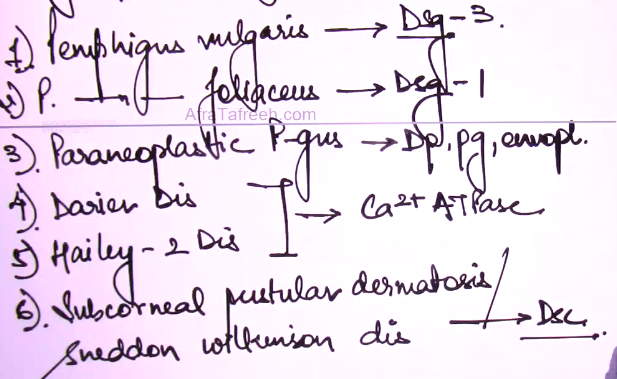 1) Pemphigus vulgaris → Dsg-3.
2) P. —"— foliaceus → Dsg-1
AfraTafreeh.com
3). Paraneoplastic P-gus → Dp, pg, envopl.
4) Darier Dis
→ Ca2+ ATPase
5) Hailey-2 Dis
6). Subcorneal pustular dermatosis/
Sneddon wilkinson dis → Dsc.